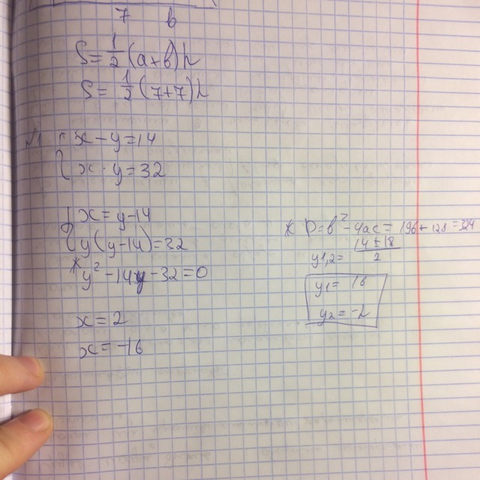 7 b
S = 1/2 (a+b) h
S = 1/2 (7+7) h
x - y = 14
x · y = 32
x = y - 14
y(y-14) = 32
* y² - 14y - 32 = 0
x = 2
x = -16
* D = b² - 4ac = 196 + 128 = 324
y1,2 = 14 ± 18 / 2
y1 = 16
y2 = -2